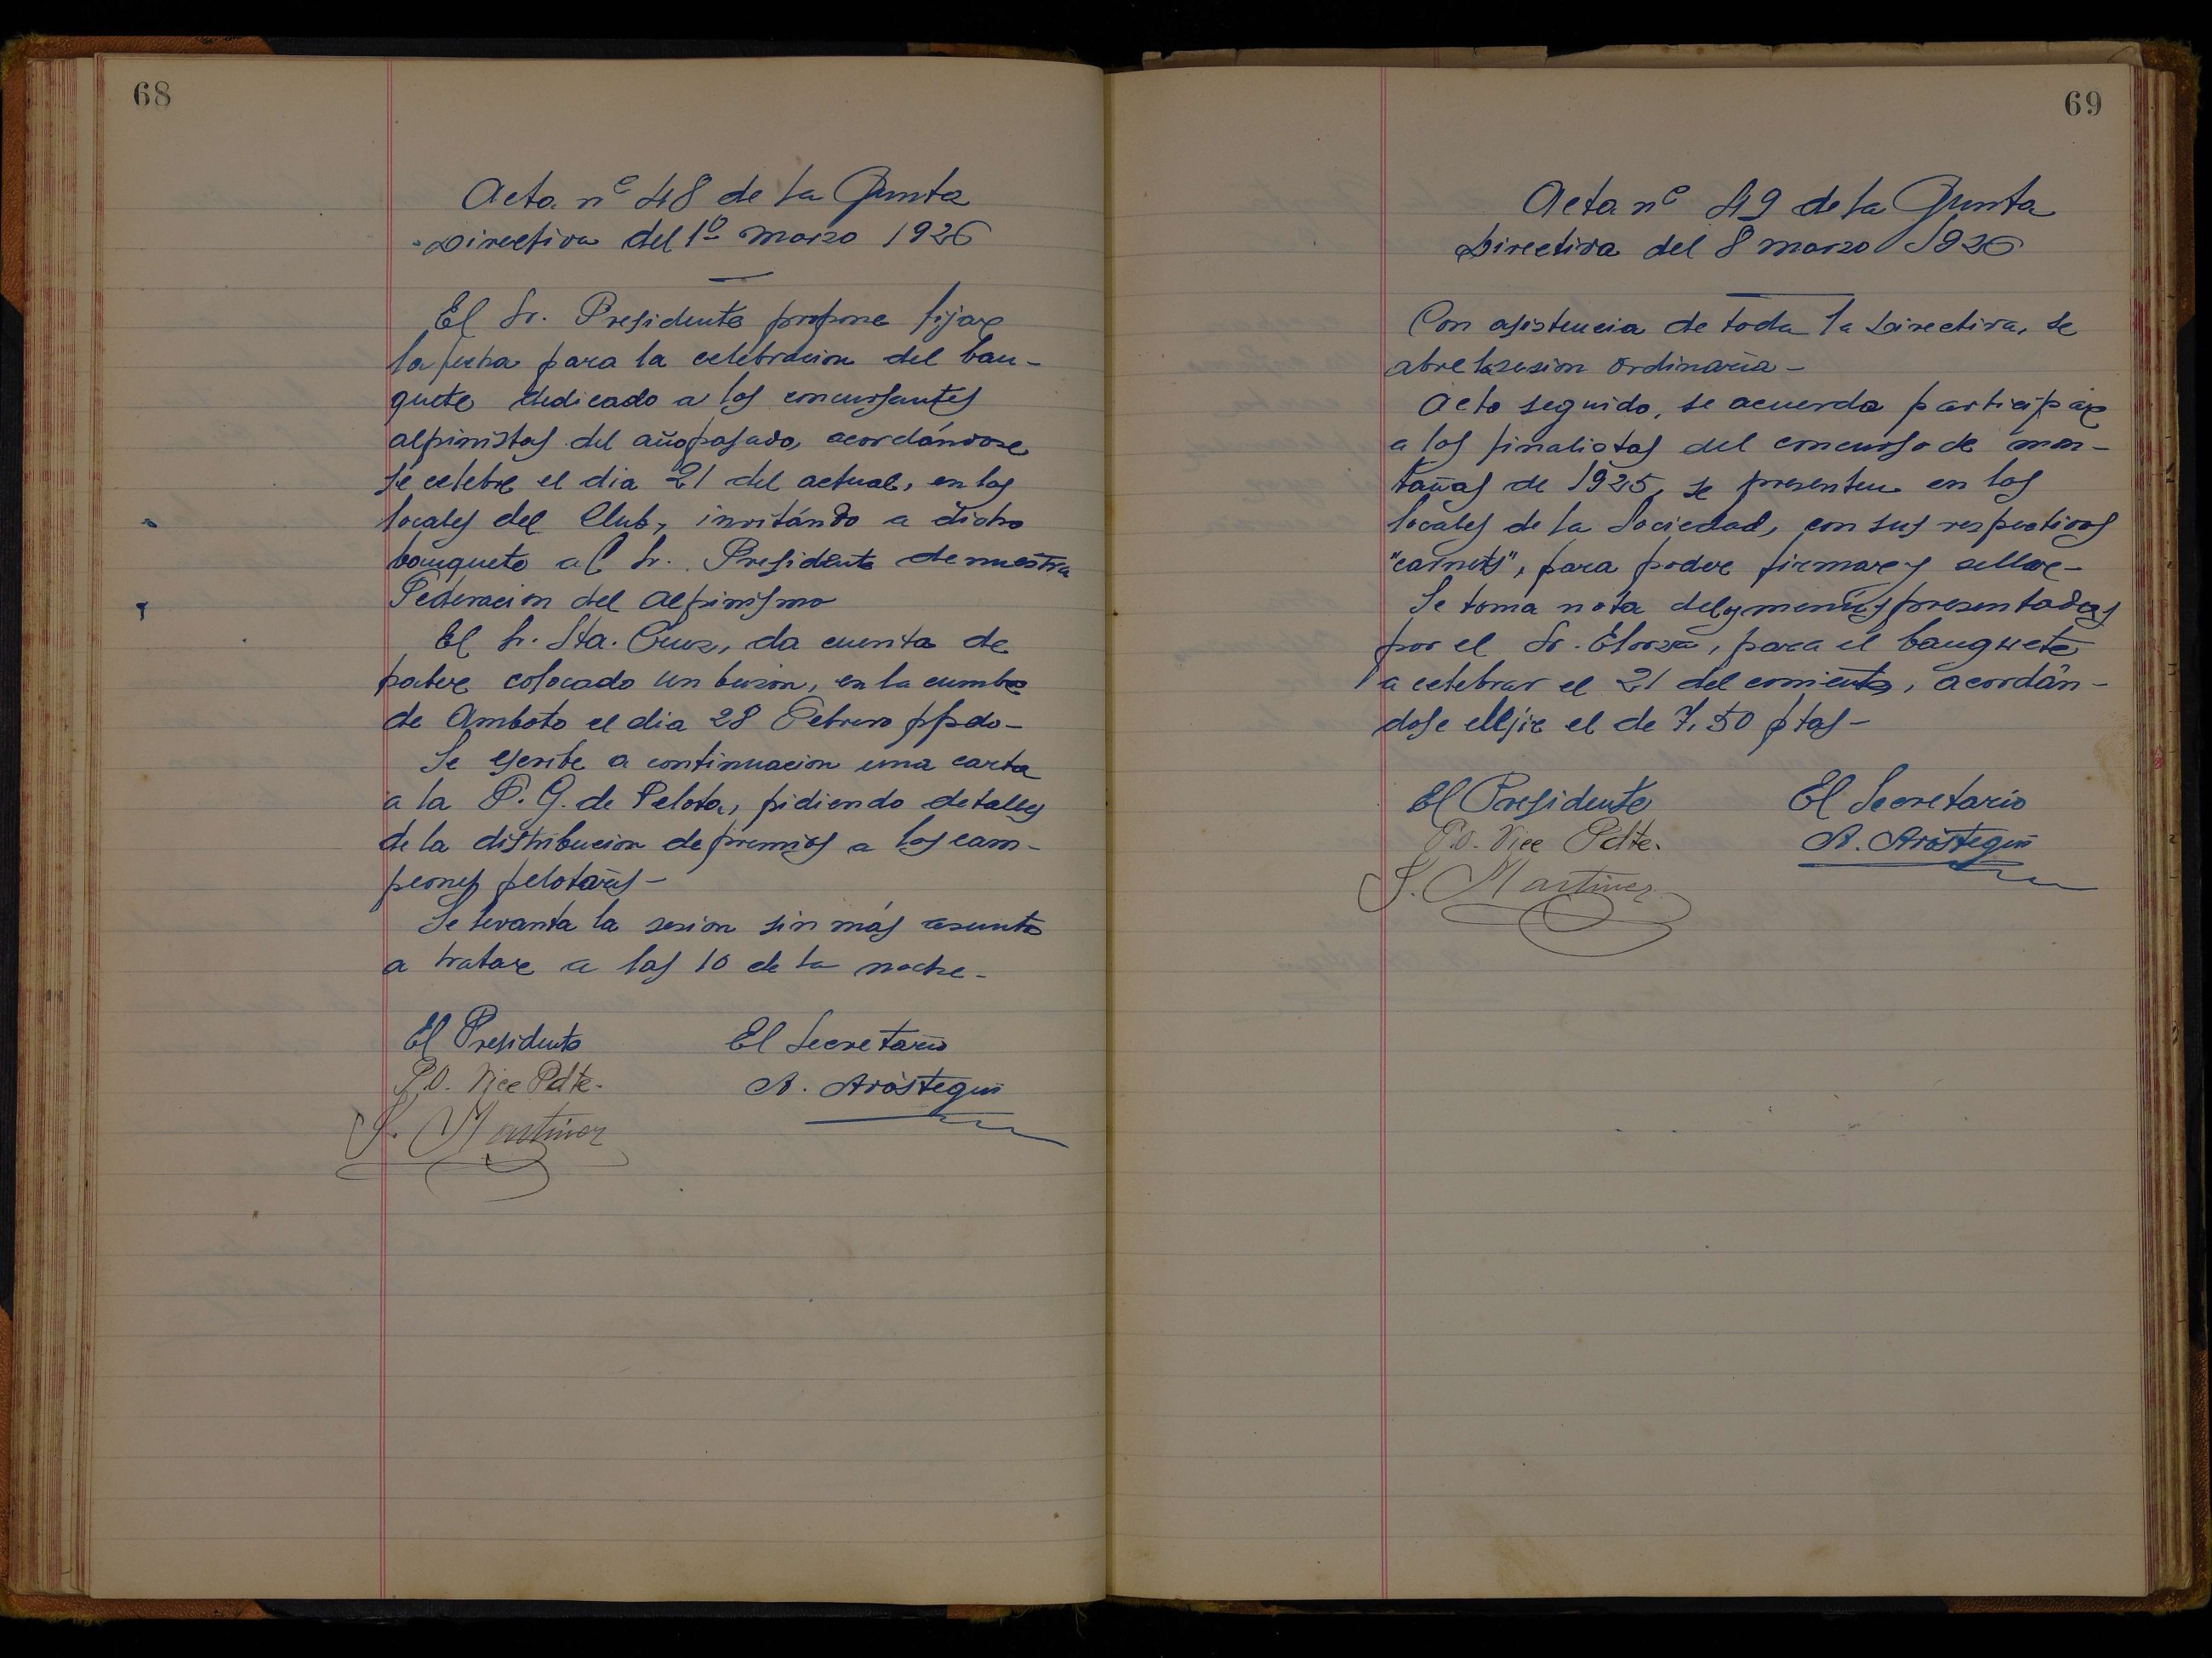 68
Acta nº 48 de la Junta
Directiva del 1º marzo 1926
El Sr. Presidente propone fijar
la fecha para la celebracion del ban-
quete dedicado a los concursantes
alpinistas del año pasado, acordándose
se celebre el dia 21 del actual, en los
locales del Club, invitándo a dicho
banquete al Sr. Presidente de nuestra
Federacion del Alpinismo
El Sr. Sta. Cruz, da cuenta de
haber colocado un buzon, en la cumbre
de Amboto el dia 28 Febrero ppdo-
Se escribe a continuacion una carta
a la F. G. de Pelota, pidiendo detalles
de la distribucion de premios a los cam-
peones pelotaris-
Se levanta la sesion sin más asunto
a tratar a las 10 de la noche-
El Presidente El Secretario
P.O. Vice Pdte. A. Aróstegui
S. Martinez
69
Acta nº 49 de la Junta
Directiva del 8 marzo 1926
Con asistencia de toda la Directiva, se
abre la sesion ordinaria-
Acto seguido, se acuerda participar
a los finalistas del concurso de mon-
tañas de 1925, se presenten en los
locales de la Sociedad, con sus respectivos
"carnets", para poder firmar y sellar-
Se toma nota de los menús presentados
por el Sr. Elorza, para el banquete
a celebrar el 21 del corriente, acordán-
dose elejir el de 7,50 ptas-
El Presidente El Secretario
P.O. Vice Pdte. A. Aróstegui
S. Martinez